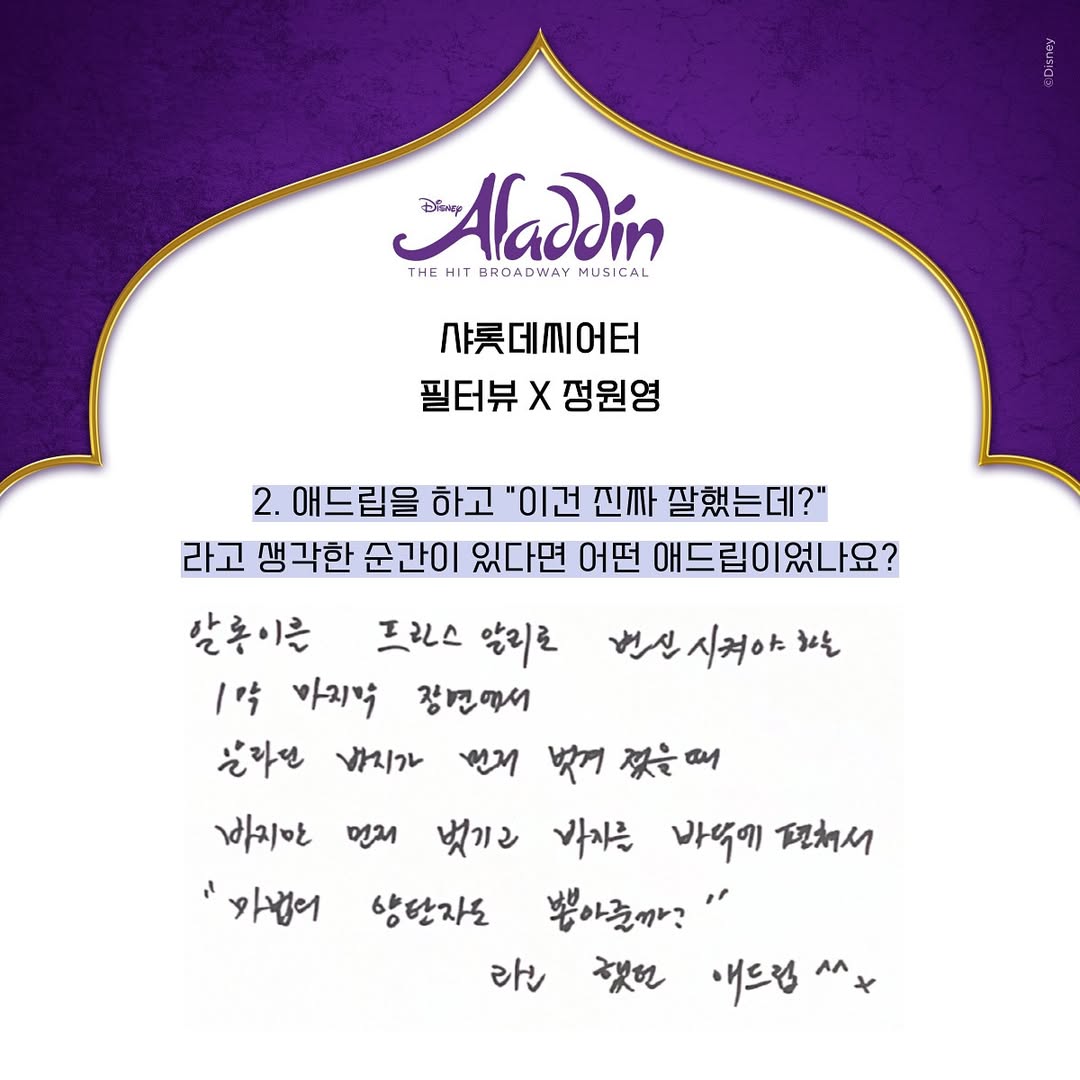 ©Disney
DISNEY
Aladdin
THE HIT BROADWAY MUSICAL
샤롯데씨어터
필터뷰 X 정원영
2. 애드립을 하고 "이건 진짜 잘했는데?"
라고 생각한 순간이 있다면 어떤 애드립이었나요?
알롱이를 프린스 알리로 변신 시켜야 하는
1막 마지막 장면에서
알라딘 바지가 먼저 벗겨 졌을 때
바지만 먼저 벗기고 바지를 바닥에 펼쳐서
"마법의 양탄자도 뽑아줄까?"
라고 했던 애드립 ^^x